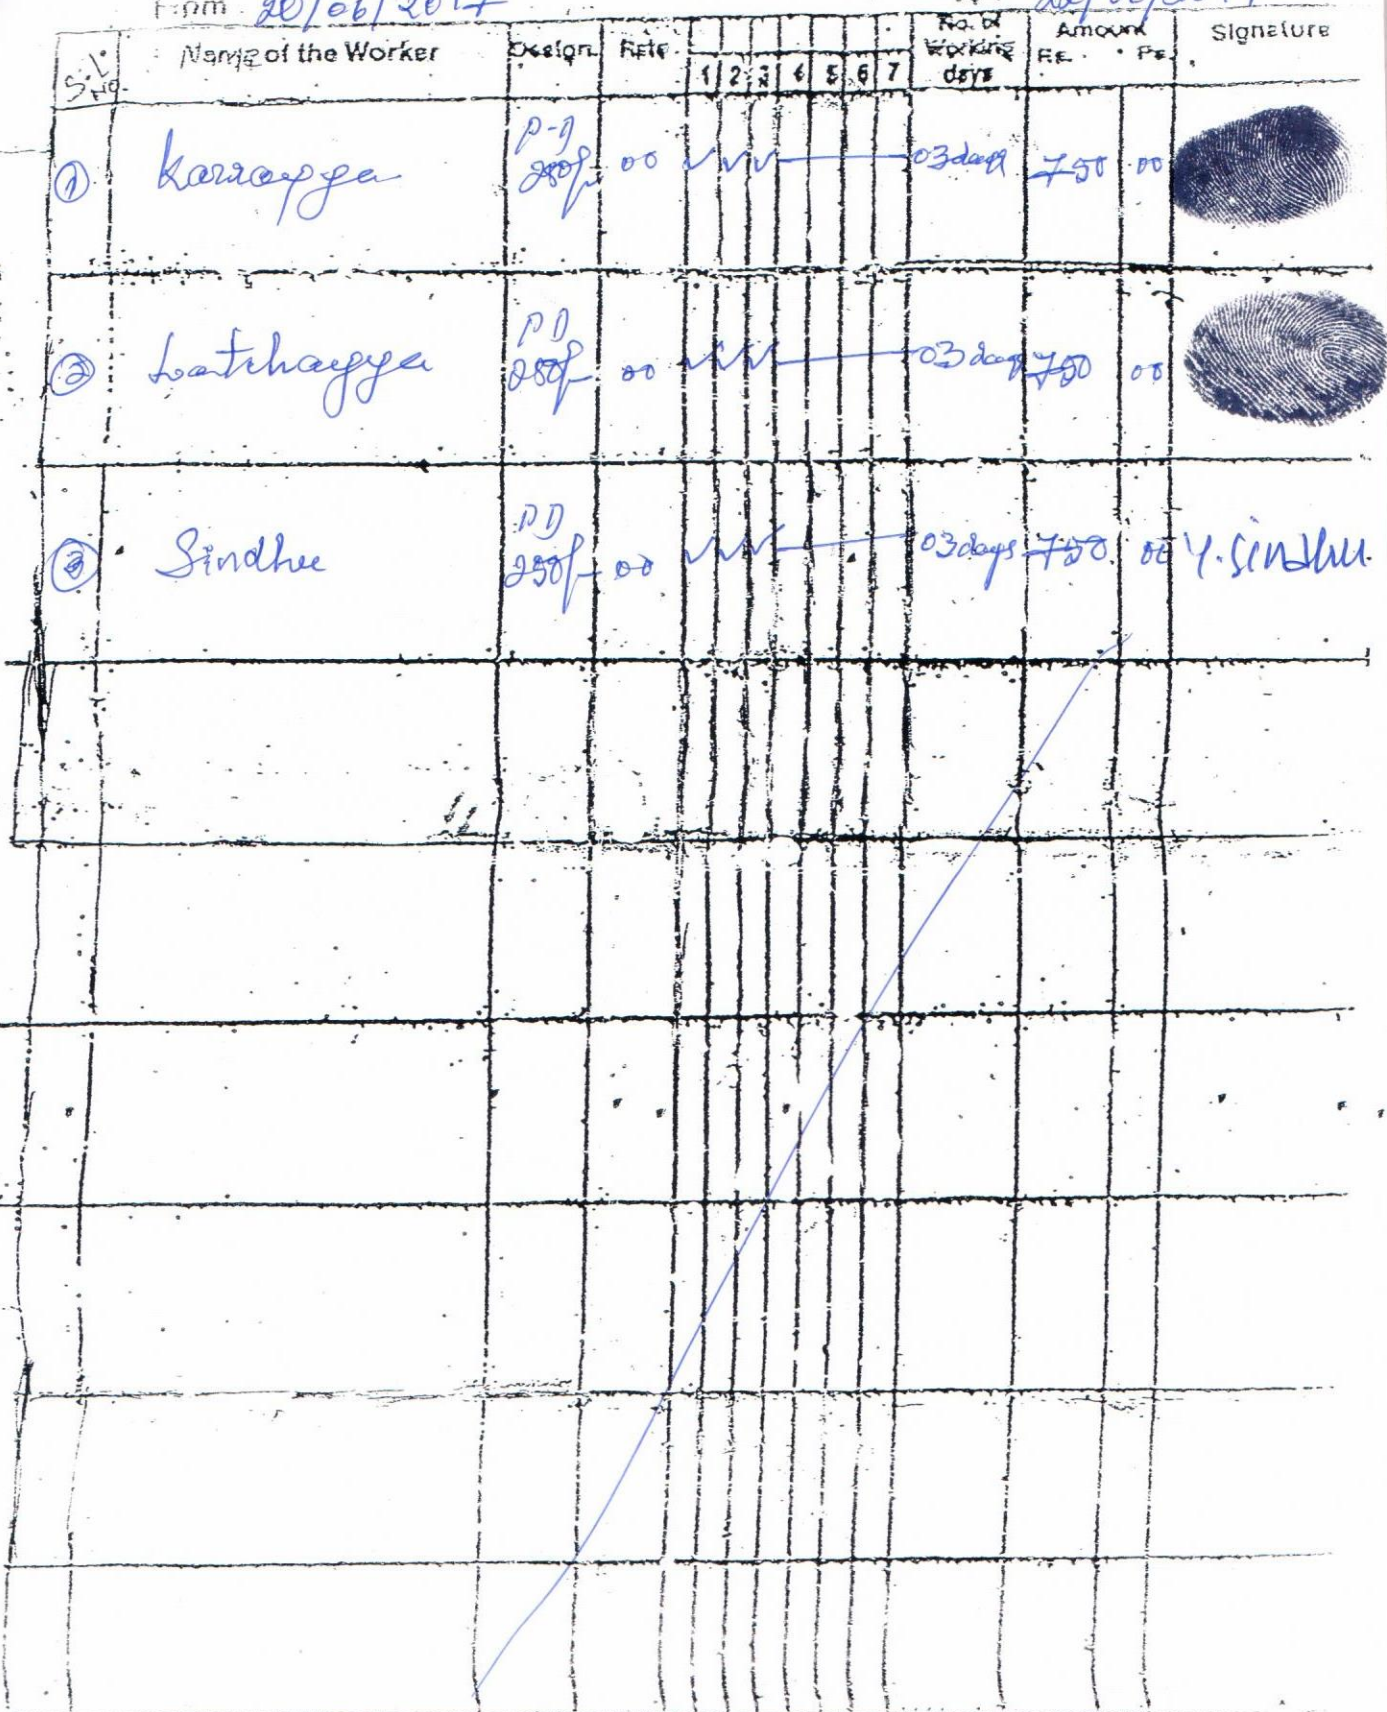 From 20/06/2017
S.L. No. Name of the Worker Design. Rate 1 2 3 4 5 6 7 No. of Working days Amount Rs. Ps. Signature
① Karrayya P-D 250/- 00 03 days 750 00
② Latchayya PD 250/- 00 03 days 750 00
③ Sindhu PD 250/- 00 03 days 750 00 Y. Sindhu.